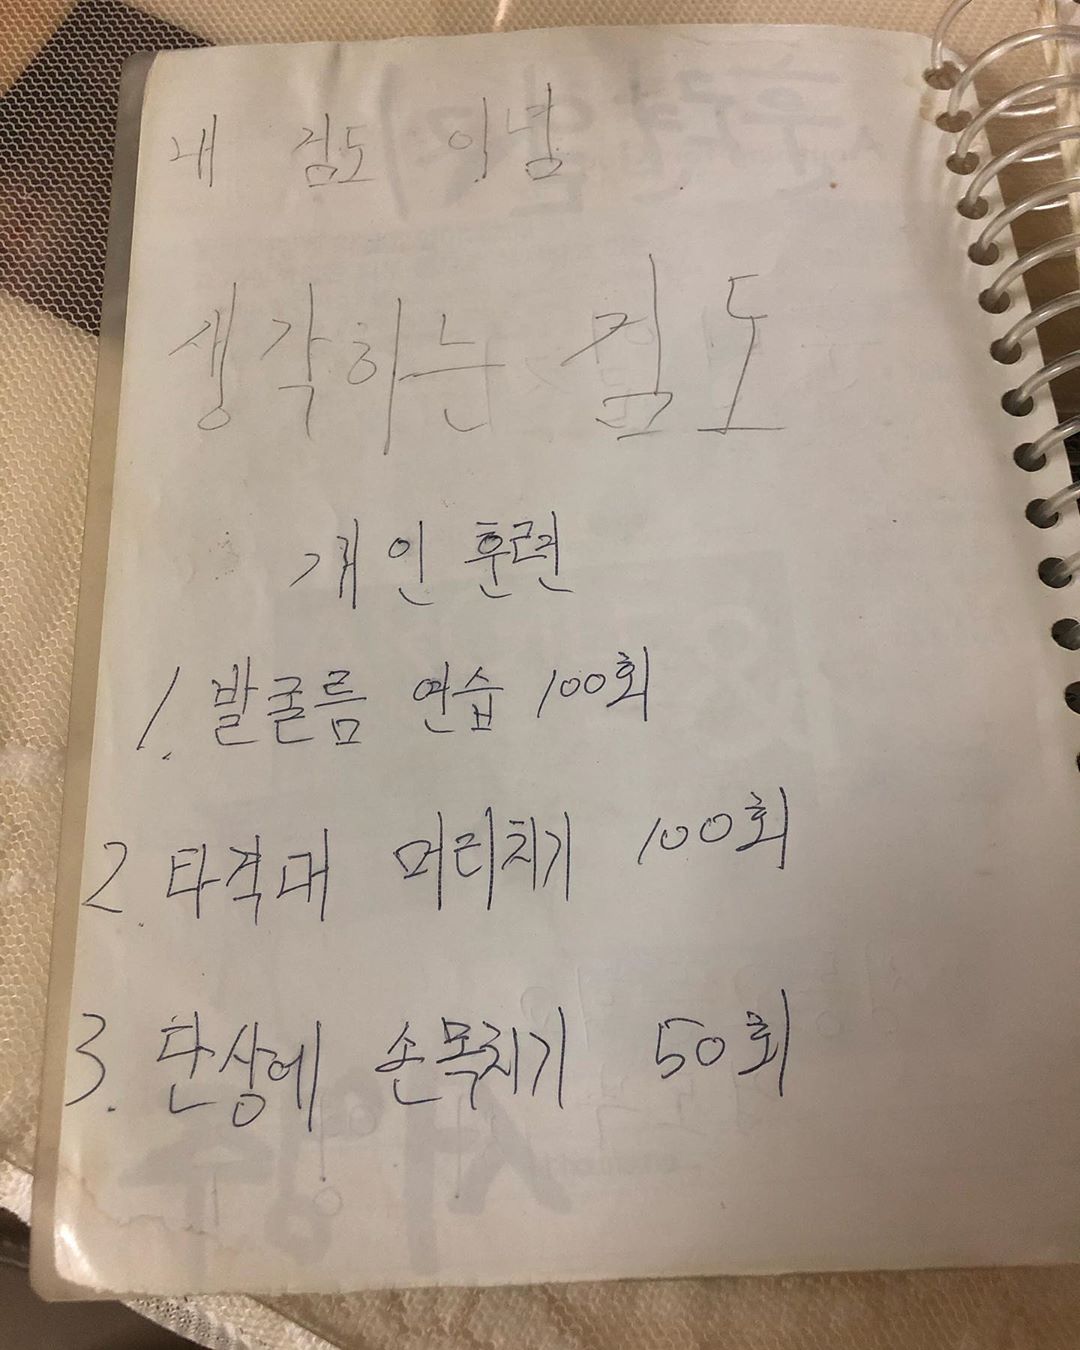 내 검도 이념
생각하는 검도
개인 훈련
1. 발굴름 연습 100회
2. 타격대 머리치기 100회
3. 탄상에 손목치기 50회